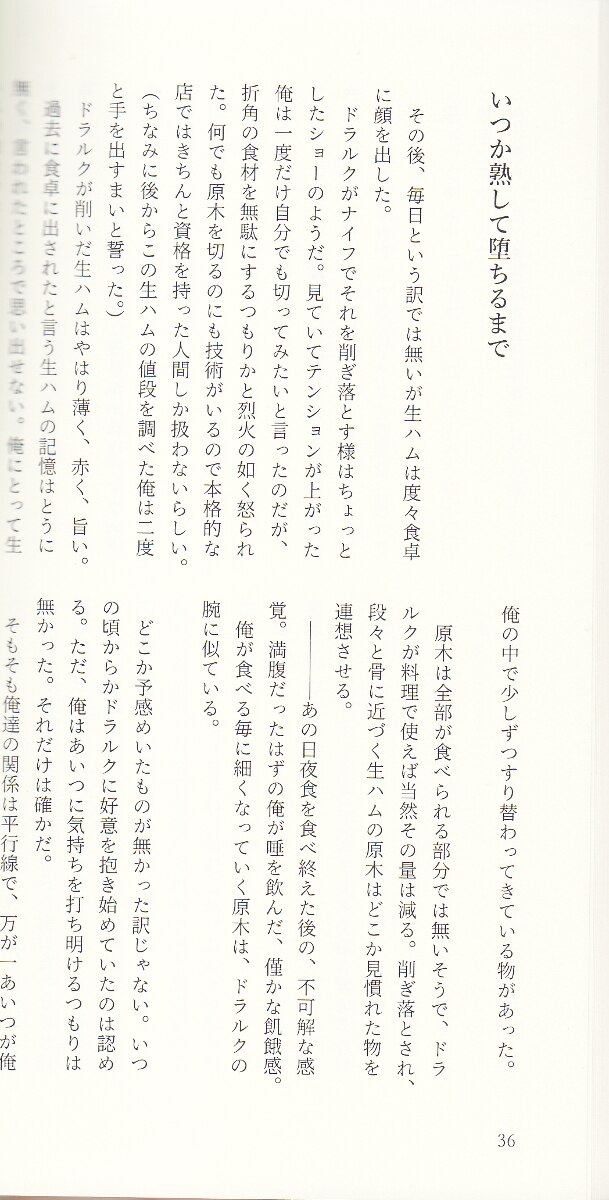 いつか熟して堕ちるまで
その後、毎日という訳では無いが生ハムは度々食卓
に顔を出した。
ドラルクがナイフでそれを削ぎ落とす様はちょっと
したショーのようだ。見ていてテンションが上がった
俺は一度だけ自分でも切ってみたいと言ったのだが、
折角の食材を無駄にするつもりかと烈火の如く怒られ
た。何でも原木を切るのにも技術がいるので本格的な
店ではきちんと資格を持った人間しか扱わないらしい。
（ちなみに後からこの生ハムの値段を調べた俺は二度
と手を出すまいと誓った。）
ドラルクが削いだ生ハムはやはり薄く、赤く、旨い。
過去に食卓に出されたと言う生ハムの記憶はとうに
無く、言われたところで思い出せない。俺にとって生
俺の中で少しずつすり替わってきている物があった。
原木は全部が食べられる部分では無いそうで、ドラ
ルクが料理で使えば当然その量は減る。削ぎ落とされ、
段々と骨に近づく生ハムの原木はどこか見慣れた物を
連想させる。
――――あの日夜食を食べ終えた後の、不可解な感
覚。満腹だったはずの俺が唾を飲んだ、僅かな飢餓感。
俺が食べる毎に細くなっていく原木は、ドラルクの
腕に似ている。
どこか予感めいたものが無かった訳じゃない。いつ
の頃からかドラルクに好意を抱き始めていたのは認め
る。ただ、俺はあいつに気持ちを打ち明けるつもりは
無かった。それだけは確かだ。
そもそも俺達の関係は平行線で、万が一あいつが俺
36